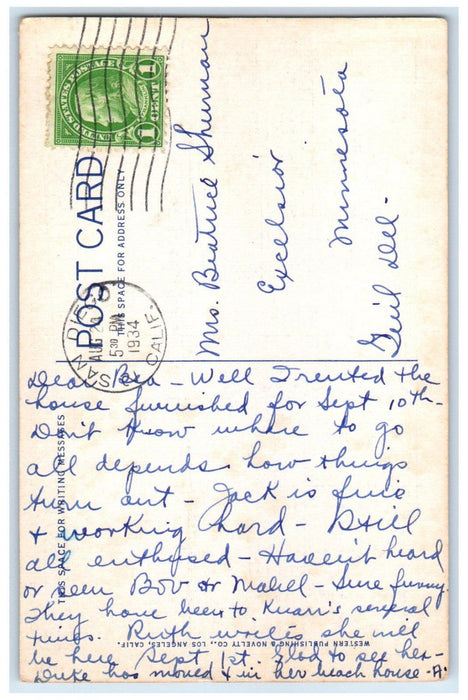 POST CARD
THIS SPACE FOR ADDRESS ONLY
UNITED STATES POSTAGE
1 CENT 1
SAN DIEGO
AUG
5 30 PM
1934
CALIF.
Mrs. Beatrice Sherman
Excelsior
Minnesota
Genl Del-
THIS SPACE FOR WRITING MESSAGES
Dear Bea - Well I rented the
house furnished for Sept 10th -
Don't know where to go
all depends how things
turn out - Jack is fine
& working hard - Still
all enthused - Haven't heard
or seen Bob or Mabell - Sure funny.
They have been to Knarr's several
times. Ruth writes she will
be here Sept 1st. Glad to see her -
Duke has moved & in her beach house -
WESTERN PUBLISHING & NOVELTY CO., LOS ANGELES, CALIF.